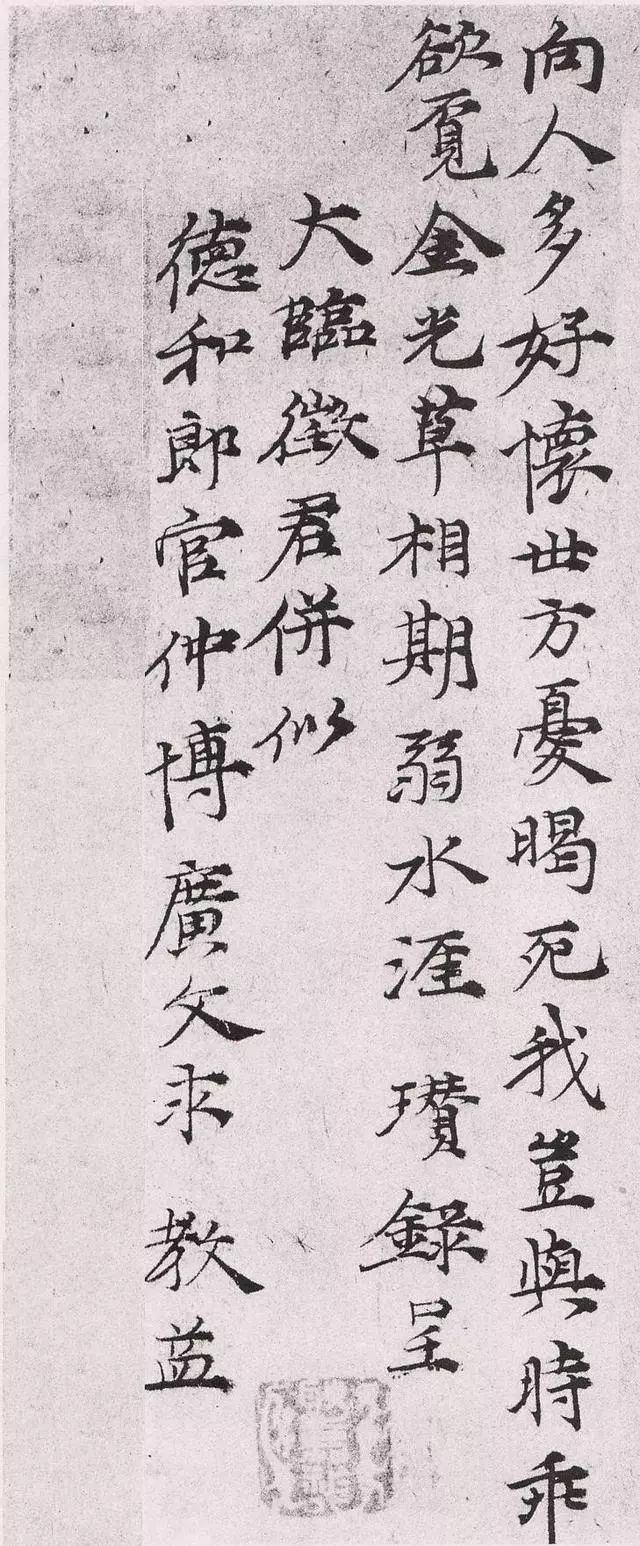 向人多好懷世方憂暍死我豈與時乖
欲覓金光草相期弱水涯 瓚錄呈
大臨徵君併似
德和郎官仲博廣文求 教益